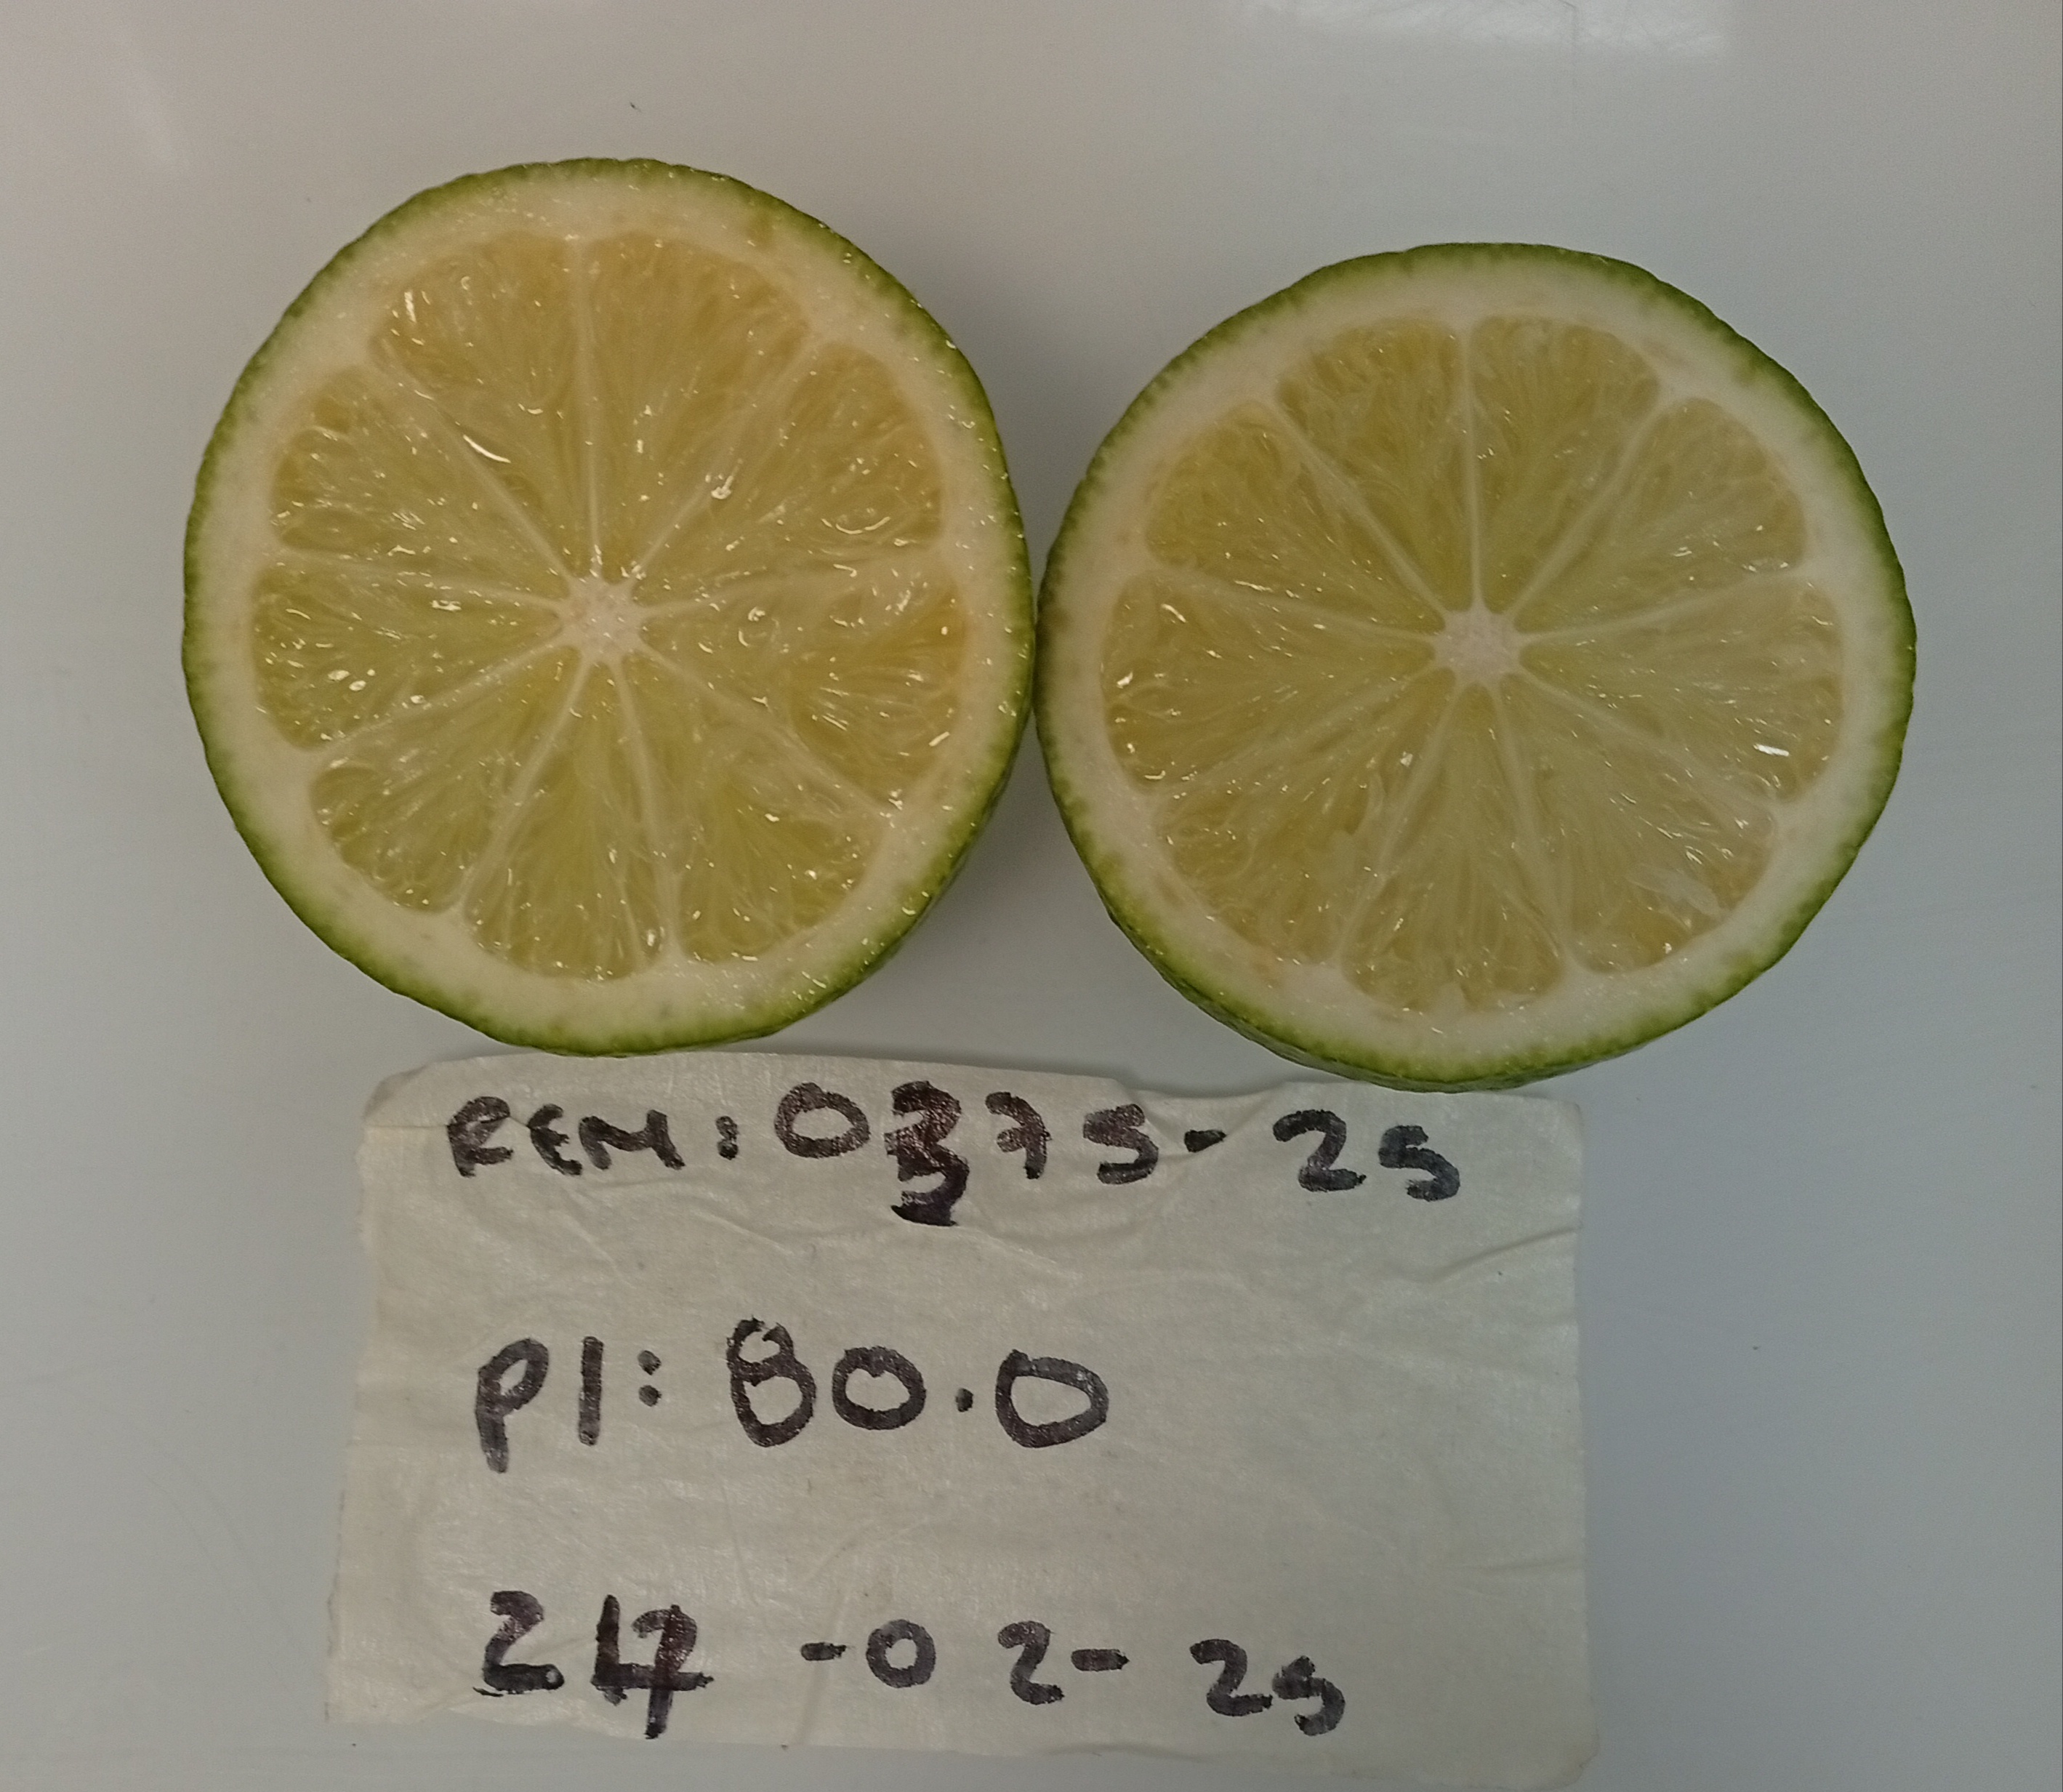 REM: 0375-25
PI: 80.0
24-02-25